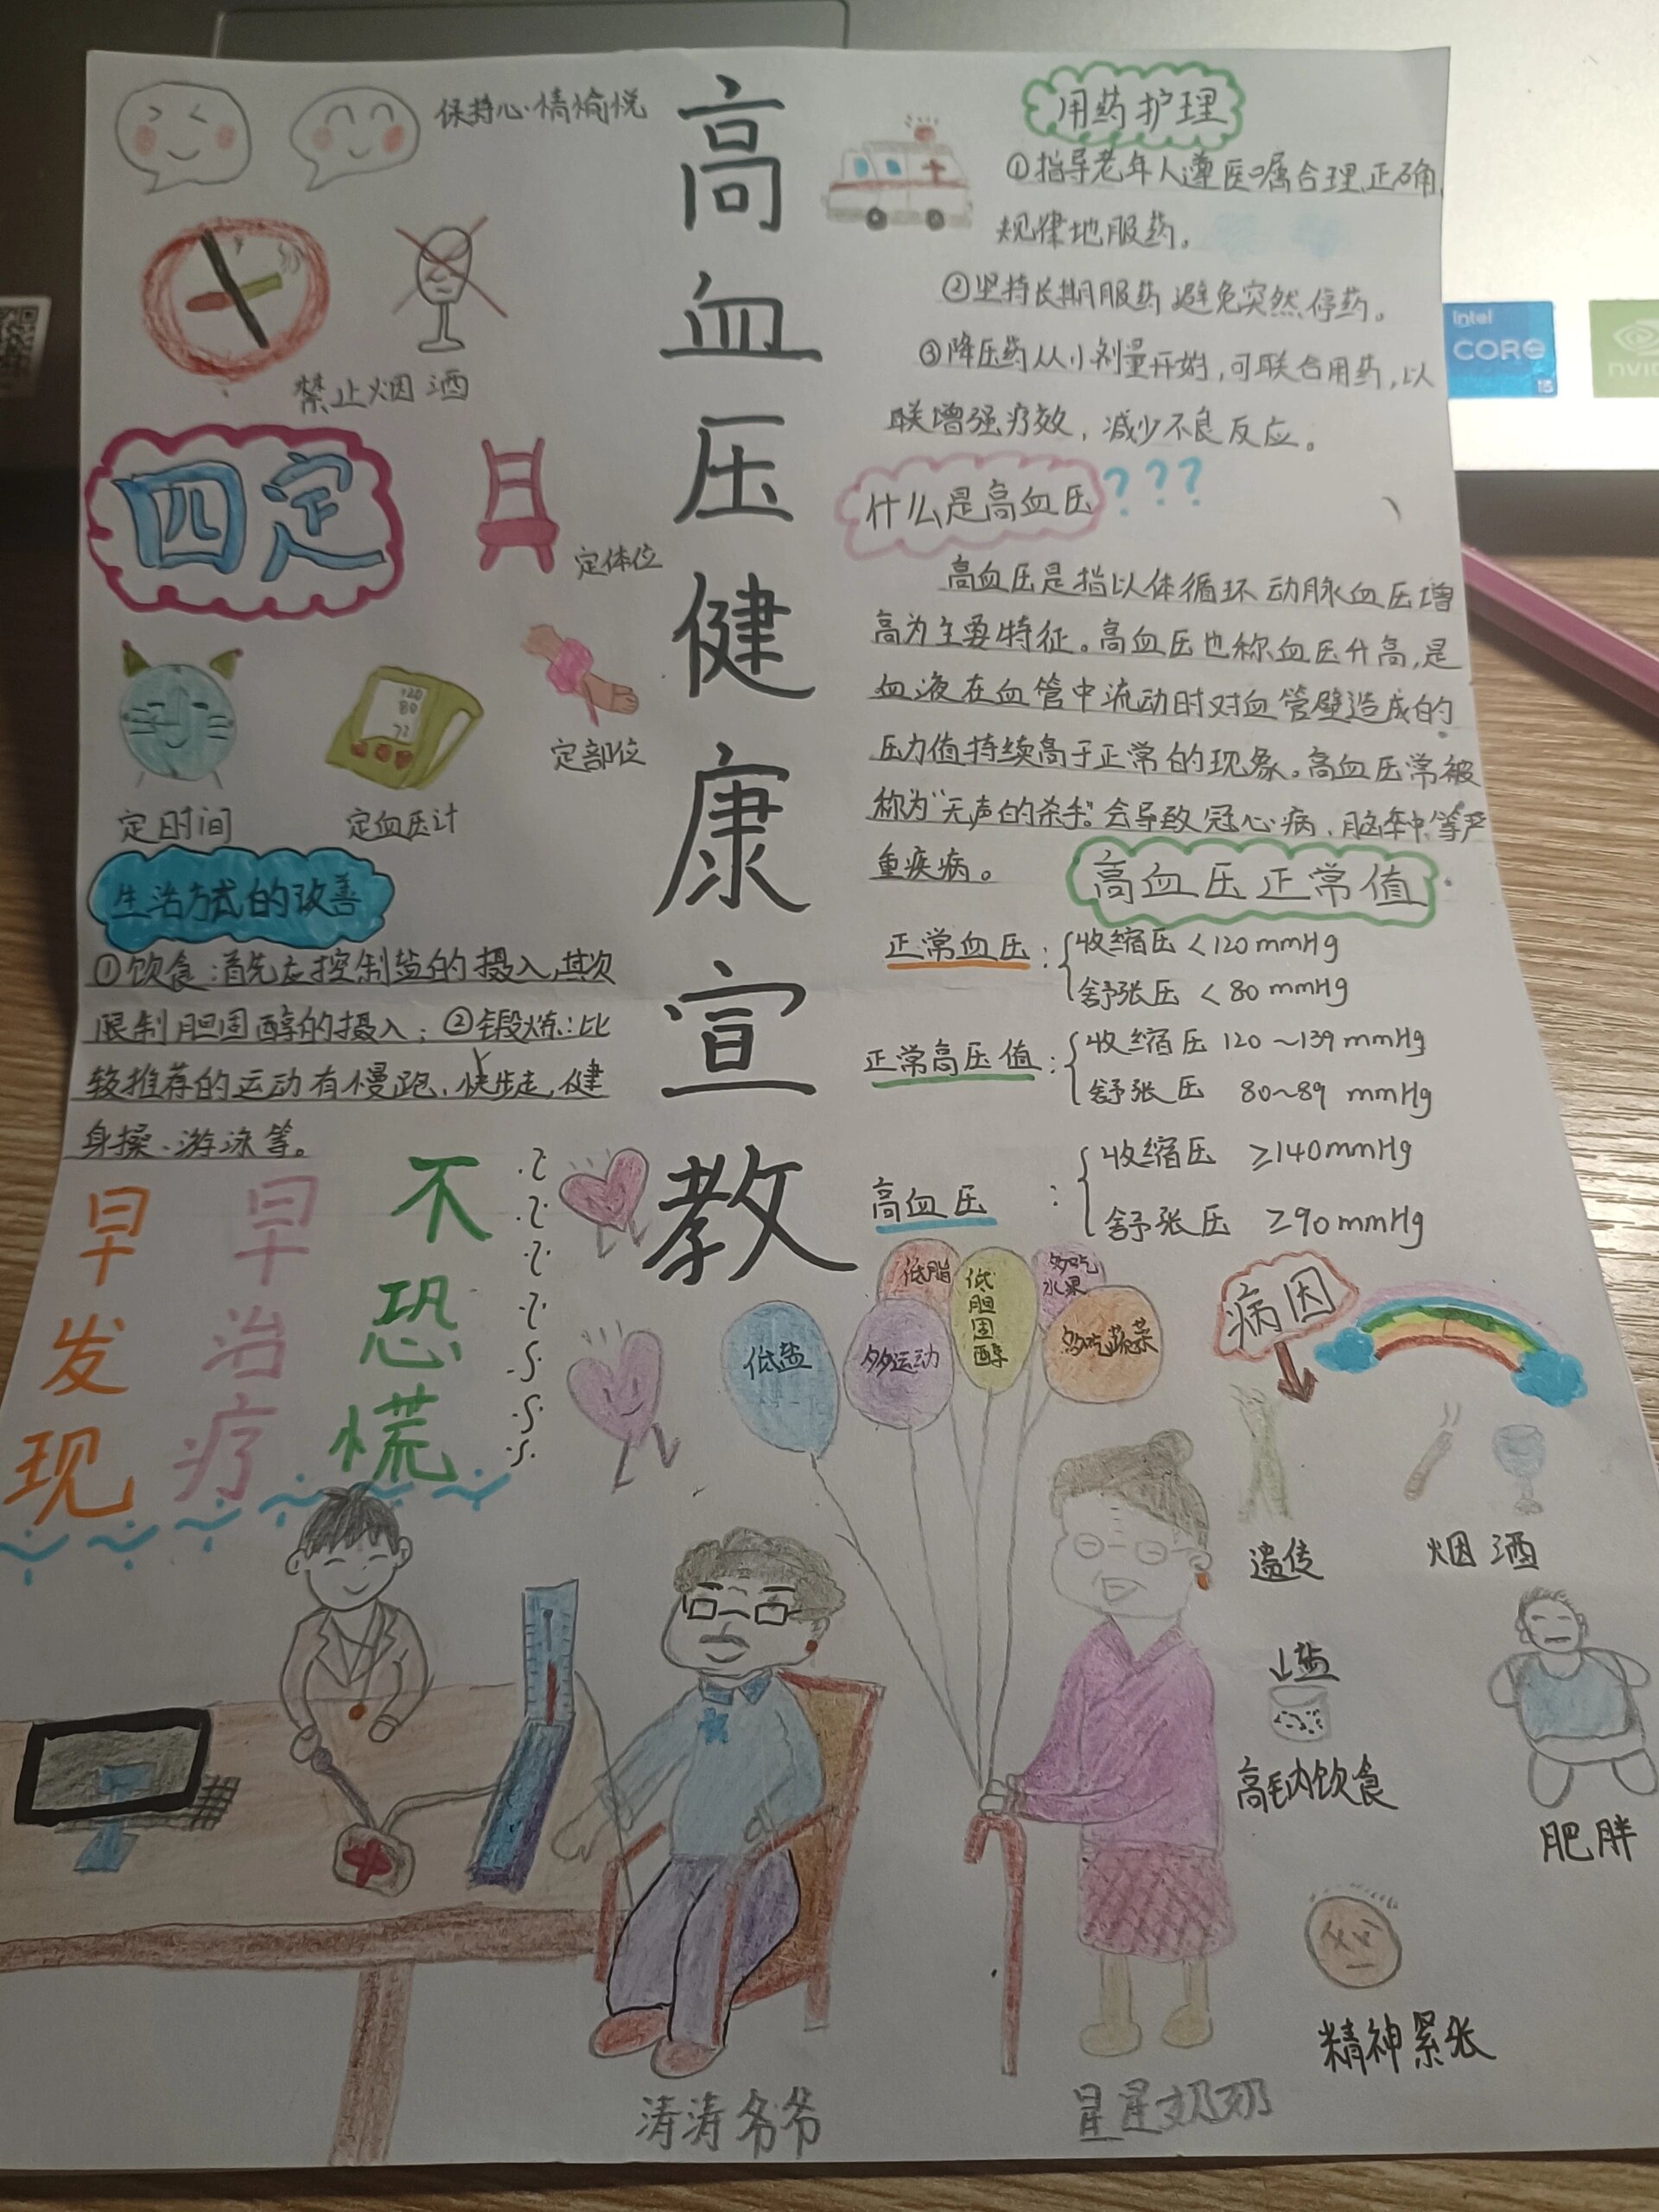 高血压健康宣教
保持心情愉悦
禁止烟酒
四定
定体位
120
80
72
定部位
定时间
定血压计
生活方式的改善
①饮食:首先应控制盐的摄入,其次
限制胆固醇的摄入;②锻炼:比
较推荐的运动有慢跑、快步走、健
身操、游泳等。
早发现
早治疗
不恐慌
用药护理
①指导老年人遵医嘱合理、正确、
规律地服药。
②坚持长期服药避免突然停药。
③降压药从小剂量开始,可联合用药,以
联增强疗效,减少不良反应。
什么是高血压???
高血压是指以体循环动脉血压增
高为主要特征。高血压也称血压升高,是
血液在血管中流动时对血管壁造成的
压力值持续高于正常的现象。高血压常被
称为“无声的杀手”。会导致冠心病、脑卒中等严
重疾病。
高血压正常值
正常血压:{收缩压<120mmHg
舒张压<80mmHg
正常高压值:{收缩压 120~139mmHg
舒张压 80~89 mmHg
高血压:{收缩压 ≥140mmHg
舒张压 ≥90mmHg
低盐
低脂
多运动
低胆固醇
多吃水果
多吃蔬菜
病因
遗传
烟酒
盐
高钠饮食
肥胖
精神紧张
涛涛爷爷
星星奶奶
intel
CORE
i5